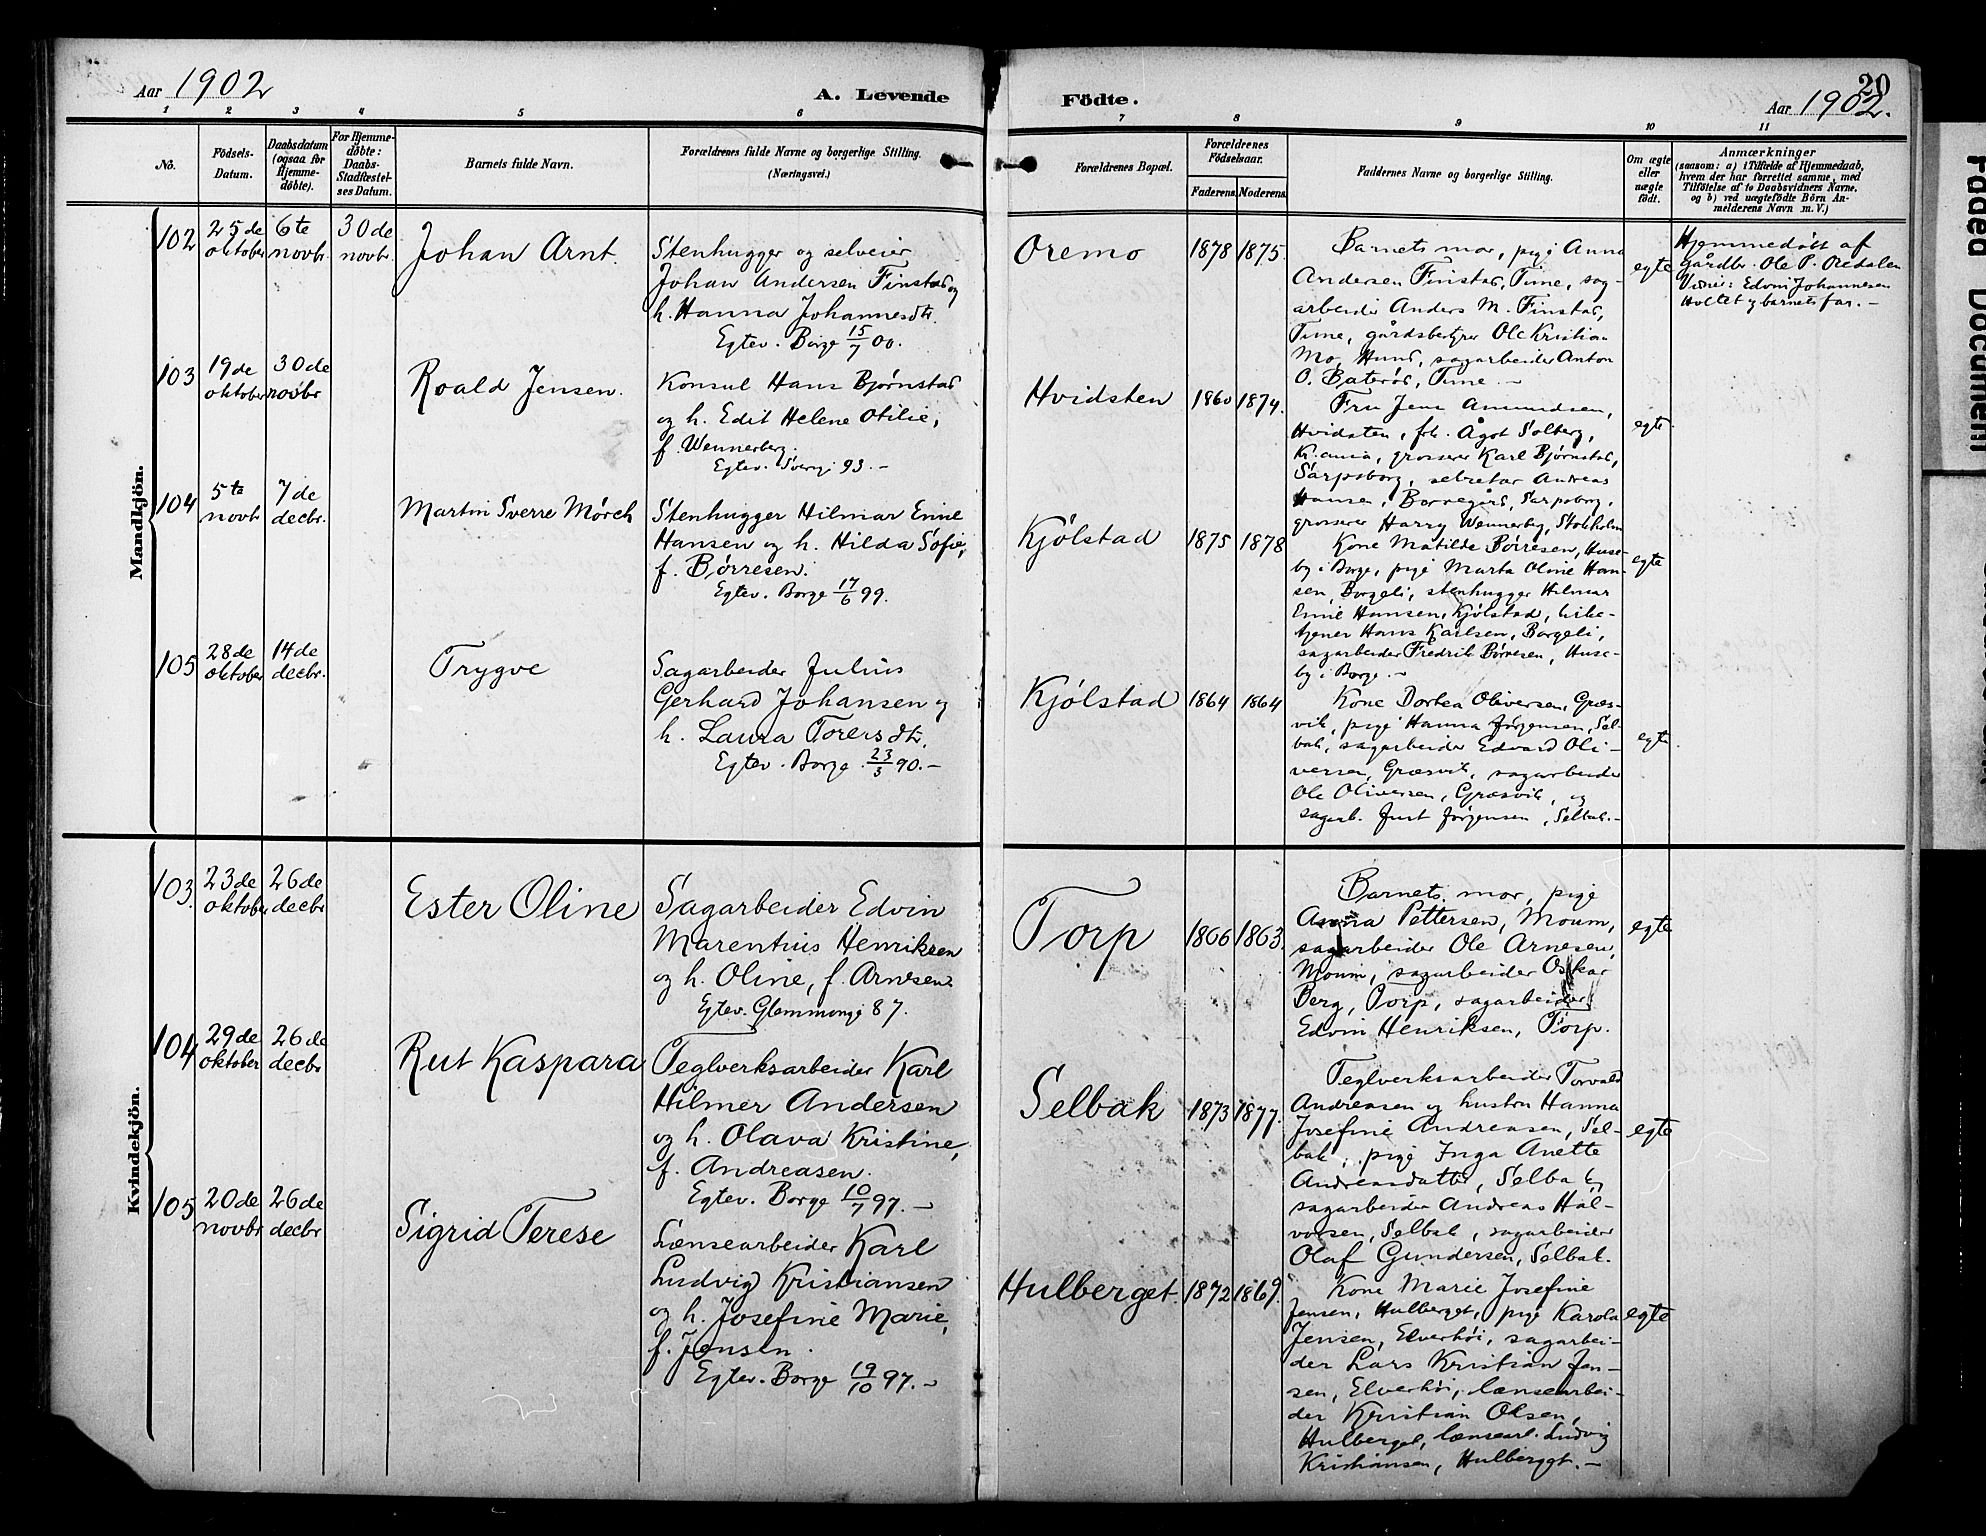 Aar 1902 A. Levende
1 2 3 4 5 6
Nô. Födsels-Datum. Daabsdatum (ogsaa for Hjemme-döbte). For Hjemme-döbte: Daabs-Stadfæstel-ses Datum. Barnets fulde Navn. Forældrenes fulde Navne og borgerlige Stilling. (Næringsvei.)
Mandkjön.
102 25de oktober 6te novbr. 30de novbr. Johan Arnt.
Stenhugger og selveier
Johan Andersen Finstad og
h. Hanna Johannesdtr.
Egtev. Borge 15/7 00.
103 19de oktober 30de novbr Roald Jensen.
Konsul Hans Bjørnstad
og h. Edit Helene Otilie,
f. Wennerberg.
Egtev. Sverg. 93. –
104 5te novbr 7de decbr. Martin Sverre Mörch
Stenhugger Hilmar Emil
Hansen og h. Hilda Sofie,
f. Börresen.
Egtev. Borge 17/6 99.
105 28de oktober 14de decbr. Trygve
Sagarbeider Julius
Gerhard Johansen og
h. Laura Torersdtr.
Egtev. Borge 23/3 90. –
Kvindekjön.
103. 23de oktober 26de decbr Ester Oline
Sagarbeider Edvin
Marentius Henriksen
og h. Oline, f. Arnesen
Egtev. Glemminge 87.
104 29de oktober 26de decbr Rut Kaspara
Teglverksarbeider Karl
Hilmer Andersen
og h. Olava Kristine,
f. Andreasen.
Egtev. Borge 10/7 97. –
105 20de novbr 26de decbr Sigrid Terese
Lænsearbeider Karl
Ludvig Kristiansen
og h. Josefine Marie,
f. Jensen.
Egtev. Borge 19/10 97. –
Födte. 20
Aar 1902.
7 8 9 10 11
Forældrenes Bopæl. Forældrenes Födselsaar. Faderens Moderens. Faddernes Navne og borgerlige Stilling. Om ægte eller uægte födt.
Anmærkninger
(saasom: a) i Tilfælde af Hjemmedaab,
hvem der har forrettet samme, med
Tilföielse af to Daabsvidners Navne.
og b) ved uægtefödte Börn An-
melderens Navn m. V.)
Oremo 1878 1875.
Barnets mor, pige Anna
Andersen Finstad, Tune, sag-
arbeider Anders M. Finstad,
Tune, gårdsbestyrer Ole Kristian
Mo, Hund, sagarbeider Anton
O. Baterød, Tune. –
egte
Hjemmedøbt af
gårdbr. Ole P. Oredalen
Vidner: Edvin Johannesen
Holtet og barnets far. –
Hvidsten 1860 1874.
Fru Jens Amundsen,
Hvidsten, frk. Ågot Solberg,
Kr.ania, grosserer Karl Bjørnstad,
Sarpsborg, sekretær Andreas
Hansen, Borregård, Sarpsborg,
grosserer Harry Wennerberg, Stokholm
egte.
Kjølstad 1875 1878
Kone Matilde Børresen, Huse-
by i Borge, pige Marta Oline Han-
sen, Borgeli, stenhugger Hilmar
Emil Hansen, Kjølstad, kirke-
tjener Hans Karlsen, Borgeli,
sagarbeider Fredrik Børresen, Huse-
by i Borge. –
egte
Kjølstad 1864 1864
Kone Dortea Oliversen, Græs-
vik, pige Hanna Jørgensen, Sel-
bak, sagarbeider Edvard Oli-
versen, Græsvik, sagarbeider
Ole Oliversen, Græsvik, og
sagarb. Just Jørgensen, Selbak. –
egte.
Torp 1866 1863.
Barnets mor, pige
Anna Pettersen, Moum,
sagarbeider Ole Arnesen,
Moum, sagarbeider Oskar
Berg, Torp, sagarbeider
Edvin Henriksen, Torp.
egte
Selbak 1873 1877.
Teglverksarbeider Torvald
Andreasen og hustru Hanna
Josefine Andreasen, Sel-
bak, pige Inga Anette
Andreasdatter, Selbak,
sagarbeider Andreas Hal-
vorsen, Selbak, sagarbeider
Olaf Gundersen, Selbak.
egte
Hulberget. 1872 1869.
Kone Marie Josefine
Jensen, Hulberget, pige Karola
Jensen, Elverhøi, sagarbei-
der Lars Kristian Jen-
sen, Elverhøi, lænsearbei-
der Kristian Olsen,
Hulberget, lænsearb. Ludvig
Kristiansen, Hulberget. –
egte
Faded Document